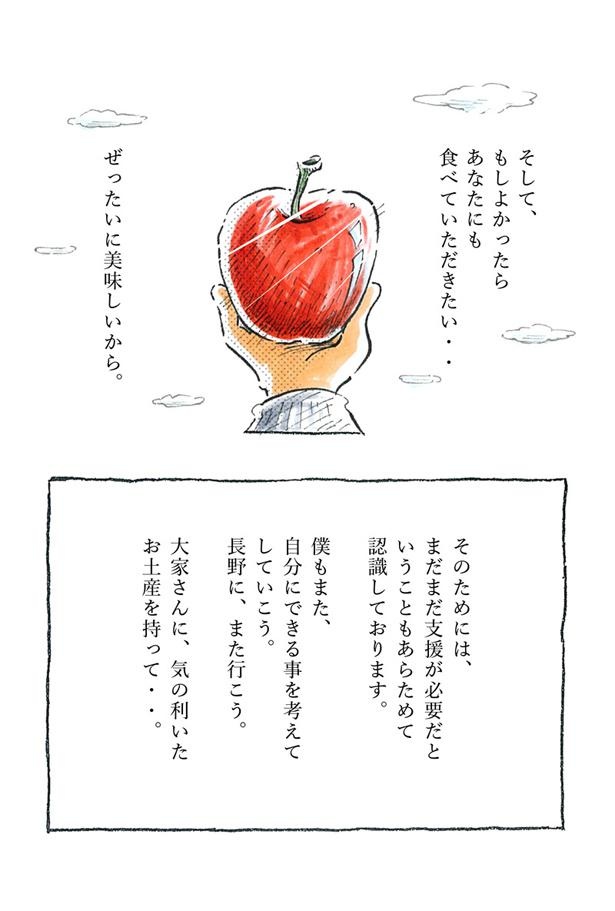 そして、
もしよかったら
あなたにも
食べていただきたい・・
ぜったいに美味しいから。
そのためには、
まだまだ支援が必要だと
いうこともあらためて
認識しております。
僕もまた、
自分にできる事を考えて
していこう。
長野に、また行こう。
大家さんに、気の利いた
お土産を持って・・。